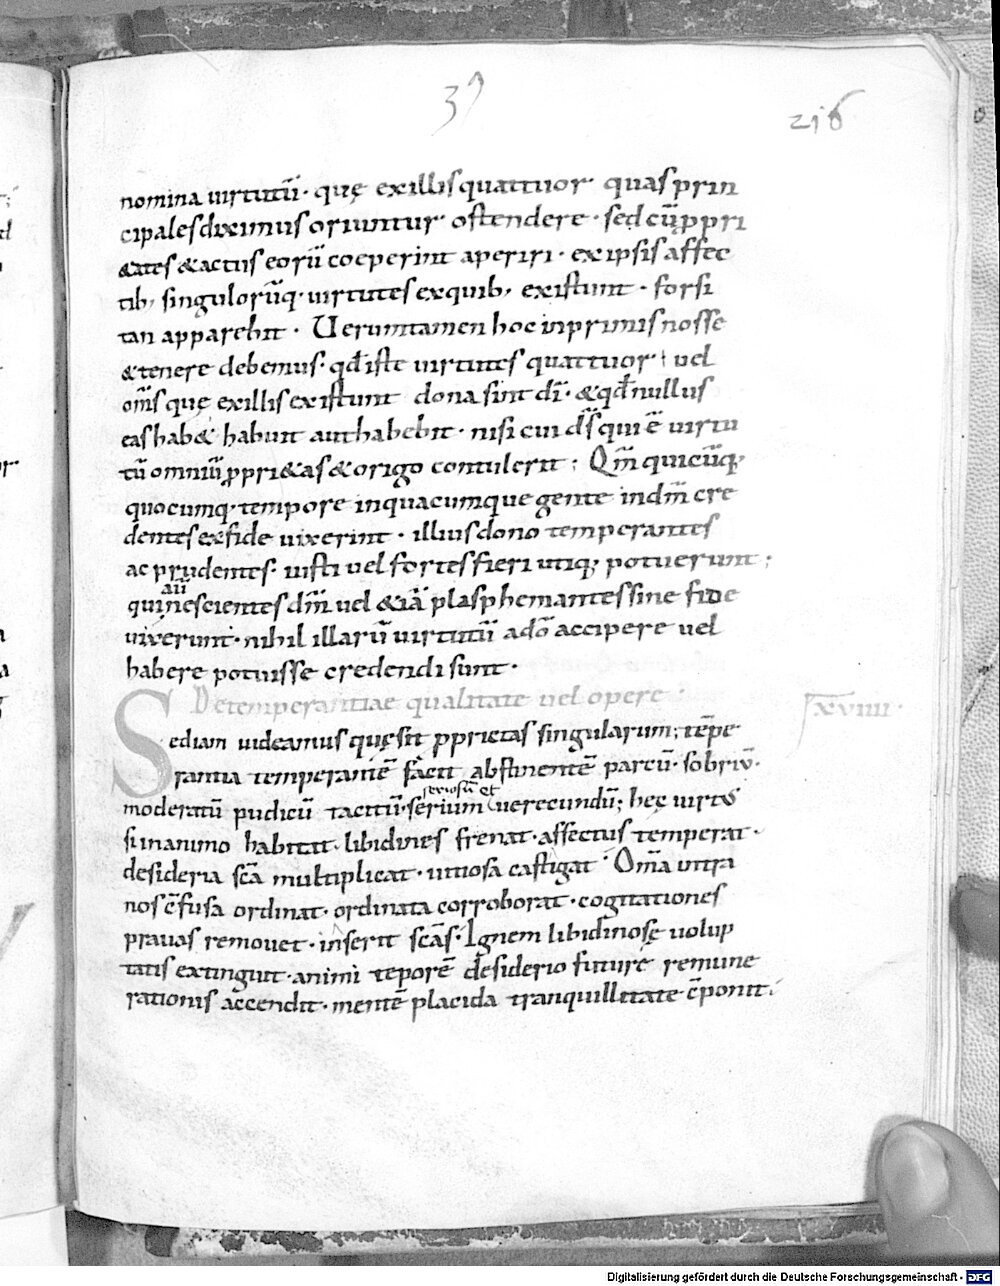 39
216
nomina uirtutū· quę ex illis quattuor quas prin
cipales diximus oriuntur ostendere · sed cū ppri
&ates & actus eorū coeperint aperiri · ex ipsis affec
tib; singulorūq· uirtutes ex quib; existunt · forsi
tan apparebit · Uerumtamen hoc inprimis nosse
& tenere debemus · qđ iste uirtutes quattuor uel
om̄s quę ex illis existunt dona sint dī · & qđ nullus
eas hab& habuit aut habebit · nisi cui d̄s qui ē uirtu
tū omniū ppri&as & origo contulerit ; Qm̄ quicūq;
quocumq· tempore in quacumque gente in dm̄ cre
dentes ex fide uixerint · illius dono temperantes
ac prudentes · iusti uel fortes fieri utiq; potuerunt ;
aū
qui nescientes dm̄ uel &iā plasphemantes sine fide
uixerunt · nihil illarū uirtutū a dō accipere uel
habere potuisse credendi sunt ·
De temperantiae qualitate uel opere · xviiii ·
Sed iam uideamus quę sit pprietas singularum ; tēpe
rantia temperantē facit abstinentē parcū · sobriū ·
seriosū et
moderatū pudicū tacitū · serium uerecundū ; hęc uirtus
si in animo habitat · libidines frenat · affectus temperat ·
desideria sc̄a multiplicat · uitiosa castigat · Om̄a intra
nos c̄fusa ordinat · ordinata corroborat · cogitationes
prauas remouet · inserit sc̄as · Ignem libidinosę uolup
tatis extinguit · animi teporē desiderio futurę remune
rationis accendit · mentē placida tranquillitate c̄ponit ·
Digitalisierung gefördert durch die Deutsche Forschungsgemeinschaft - DFG